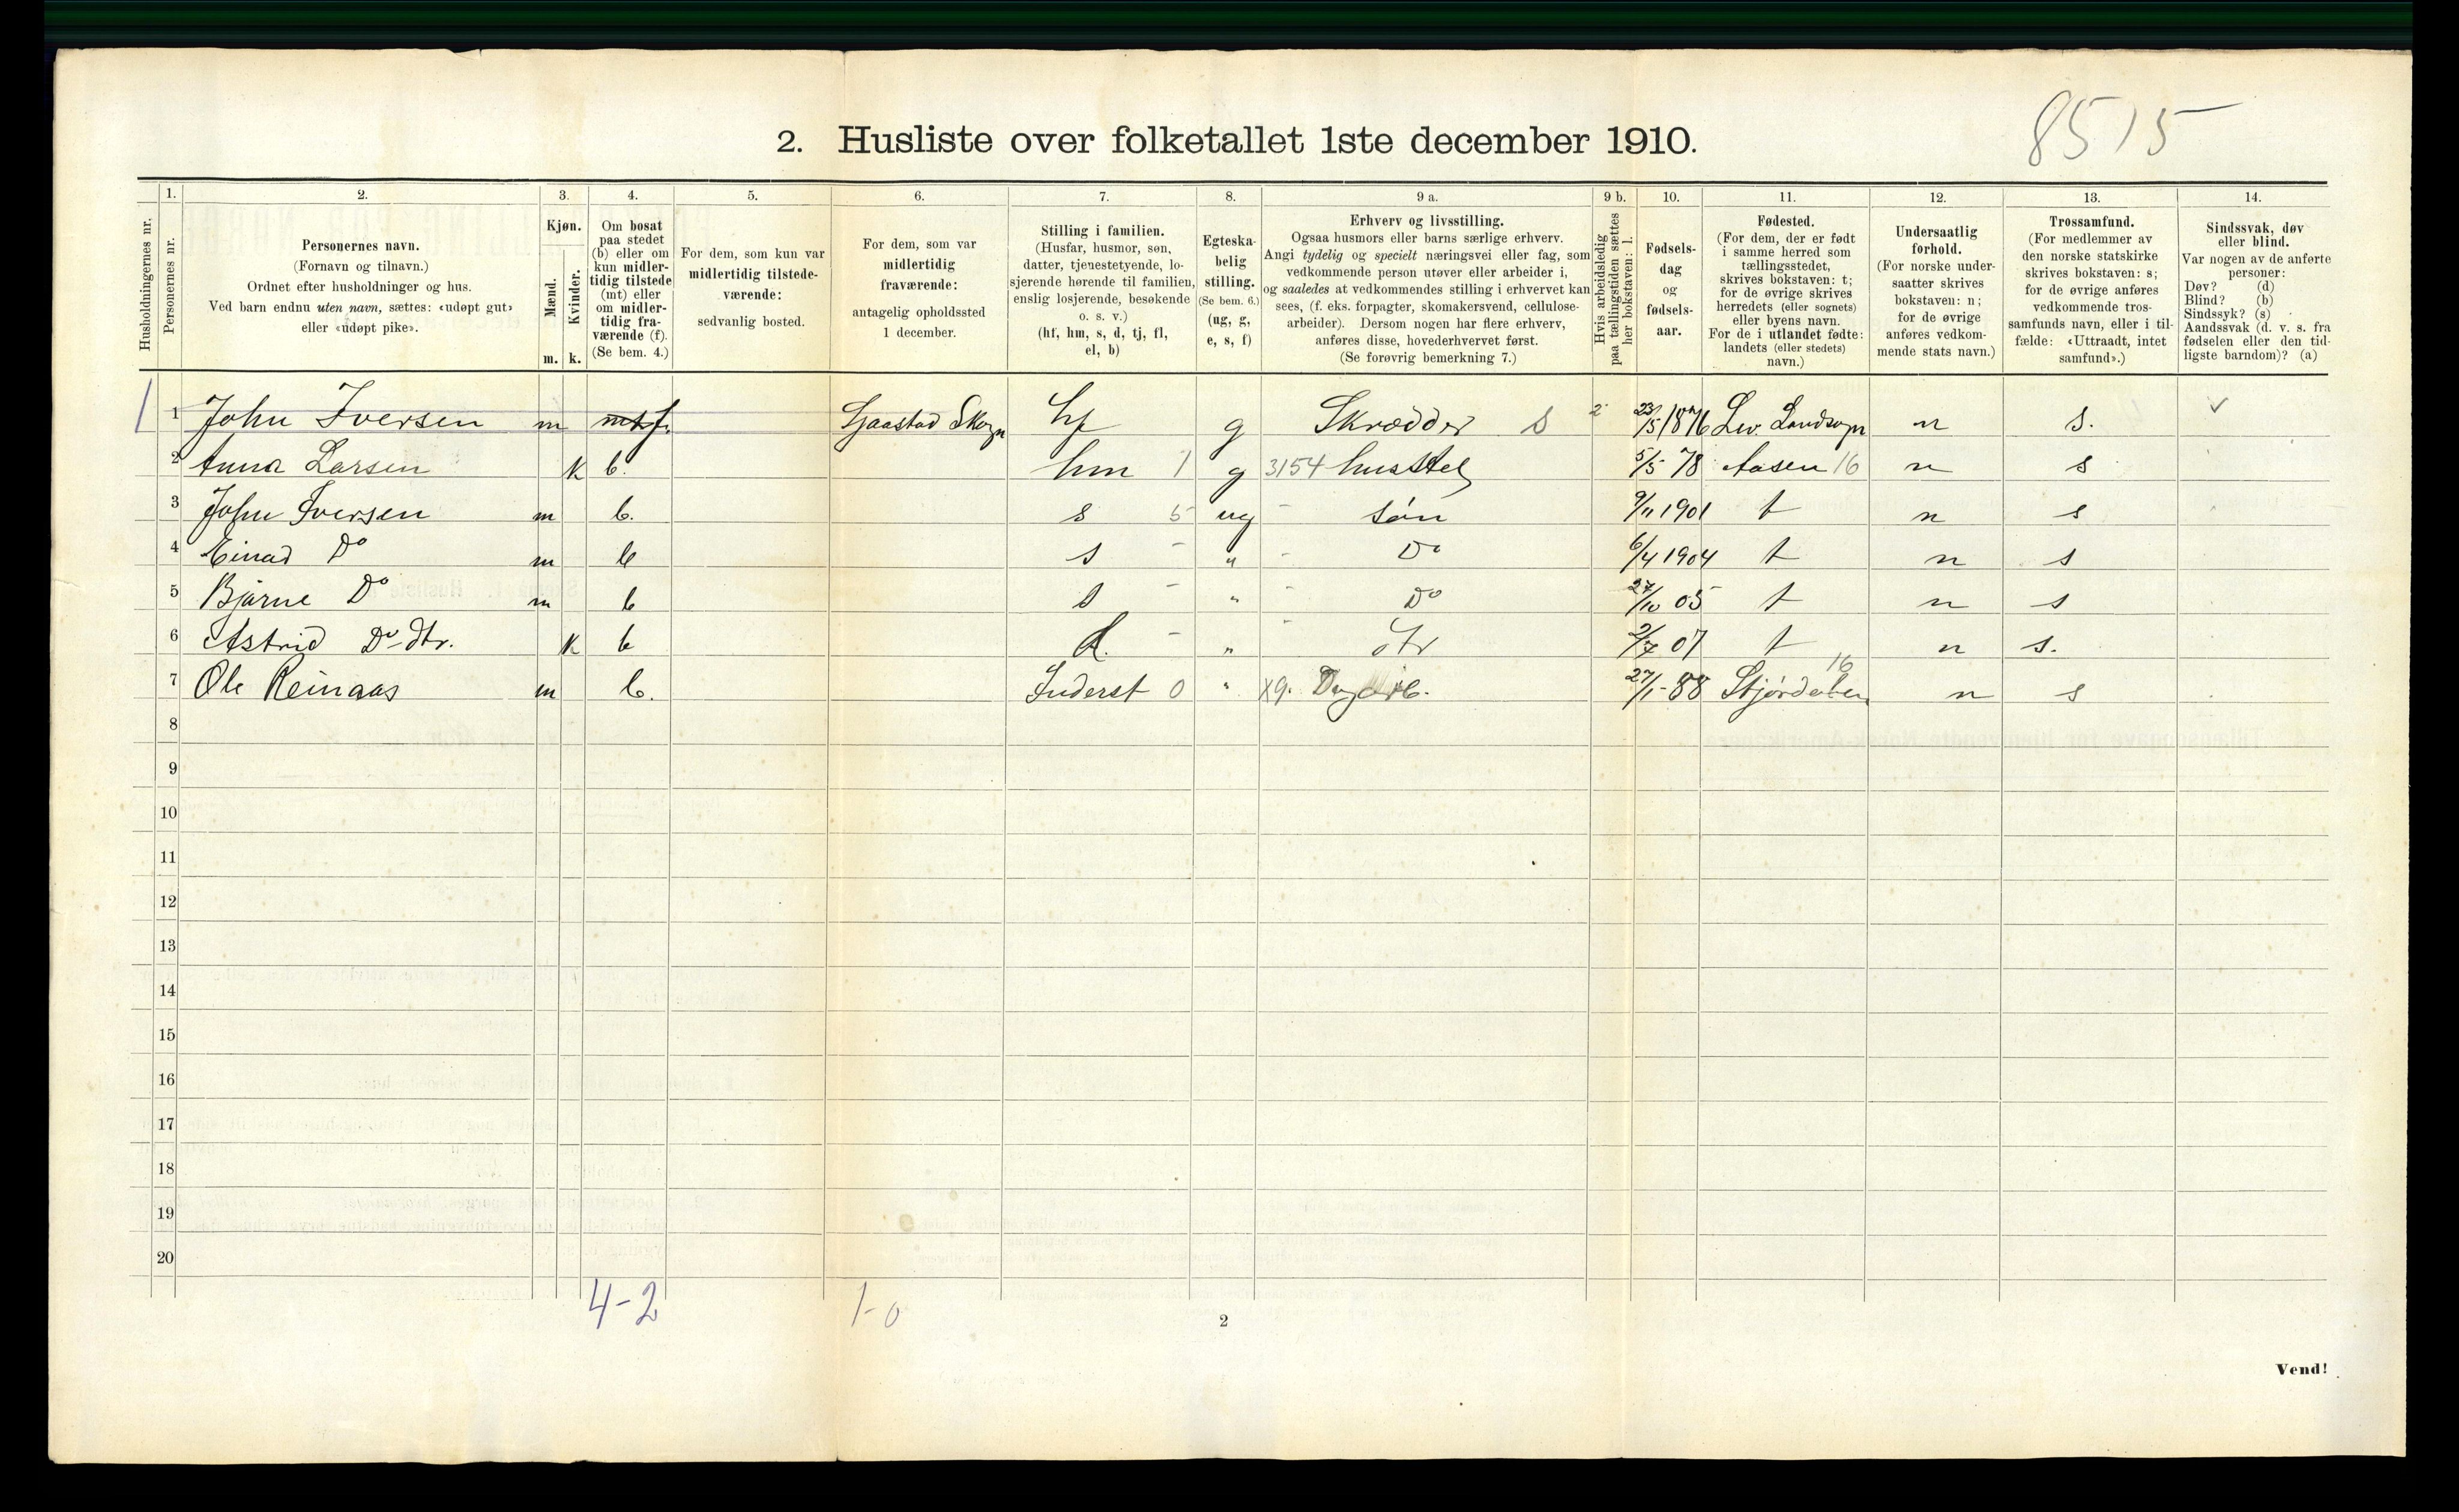 8515
2. Husliste over folketallet 1ste december 1910.
Husholdningernes nr.
1.
Personernes nr.
2.
Personernes navn.
(Fornavn og tilnavn.)
Ordnet efter husholdninger og hus.
Ved barn endnu uten navn, sættes: «udøpt gut»
eller «udøpt pike».
3.
Kjøn.
Mænd.
Kvinder.
m. k.
4.
Om bosat
paa stedet
(b) eller om
kun midler-
tidig tilstede
(mt) eller
om midler-
tidig fra-
værende (f).
(Se bem. 4.)
5.
For dem, som kun var
midlertidig tilstede-
værende:
sedvanlig bosted.
6.
For dem, som var
midlertidig
fraværende:
antagelig opholdssted
1 december.
7.
Stilling i familien.
(Husfar, husmor, søn,
datter, tjenestetyende, lo-
sjerende hørende til familien,
enslig losjerende, besøkende
o. s. v.)
(hf, hm, s, d, tj, fl,
el, b)
8.
Egteska-
belig
stilling.
(Se bem. 6.)
(ug, g,
e, s, f)
9 a.
Erhverv og livsstilling.
Ogsaa husmors eller barns særlige erhverv.
Angi tydelig og specielt næringsvei eller fag, som
vedkommende person utøver eller arbeider i,
og saaledes at vedkommendes stilling i erhvervet kan
sees, (f. eks. forpagter, skomakersvend, cellulose-
arbeider). Dersom nogen har flere erhverv,
anføres disse, hovederhvervet først.
(Se forøvrig bemerkning 7.)
9 b.
Hvis arbeidsledig
paa tællingstiden sættes
her bokstaven: l.
10.
Fødsels-
dag
og
fødsels-
aar.
11.
Fødested.
(For dem, der er født
i samme herred som
tællingsstedet,
skrives bokstaven: t;
for de øvrige skrives
herredets (eller sognets)
eller byens navn.
For de i utlandet fødte:
landets (eller stedets)
navn.)
12.
Undersaatlig
forhold.
(For norske under-
saatter skrives
bokstaven: n;
for de øvrige
anføres vedkom-
mende stats navn.)
13.
Trossamfund.
(For medlemmer av
den norske statskirke
skrives bokstaven: s;
for de øvrige anføres
vedkommende tros-
samfunds navn, eller i til-
fælde: «Uttraadt, intet
samfund».)
14.
Sindssvak, døv
eller blind.
Var nogen av de anførte
personer:
Døv? (d)
Blind? (b)
Sindssyk? (s)
Aandssvak (d. v. s. fra
fødselen eller den tid-
ligste barndom)? (a)
1 1 John Iversen m mt f. Skogn hf g Skrædder S 2 23/5 1876 Lev. Landsogn n s.
2 Anna Larsen k b. hm 1 g 3154 husstel 5/5 78 Aasen 16 n s
3 John Iversen m b. s 5 ug - søn 9/11 1901 t n s
4 Einad Do m b s - " - Do 6/4 1904 t n s
5 Bjarne Do m b s - " - Do 27/10 05 t n s
6 Astrid Do dtr. k b d. - " - dtr 2/7 07 t n s.
7 Ole Reinaas m b. Inderst 0 " x9. Dagarb. 27/1-88 Stjørdalen 16 n s
8
9
10
11
12
13
14
15
16
17
18
19
20
4-2 1-0
2
Vend!